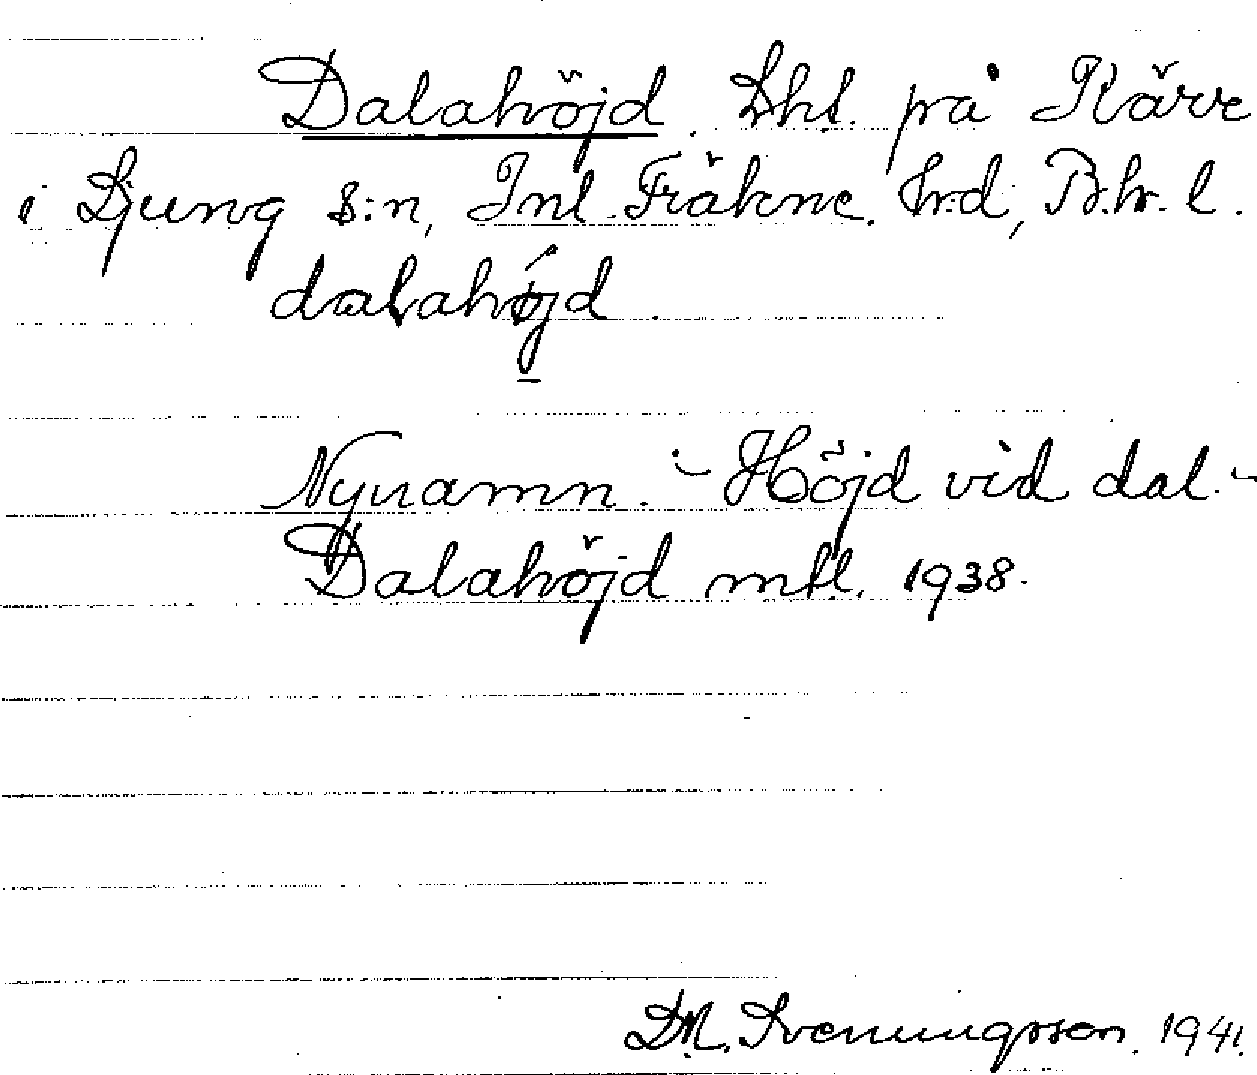 Dalahöjd. Lht. på Kärve
i Ljung s:n, Inl. Fräkne. hrd, B.hr. l.
dalahöjd
Nynamn. - Höjd vid dal. -
Dalahöjd mtl. 1938.
D.N. Svenningsson. 1941.